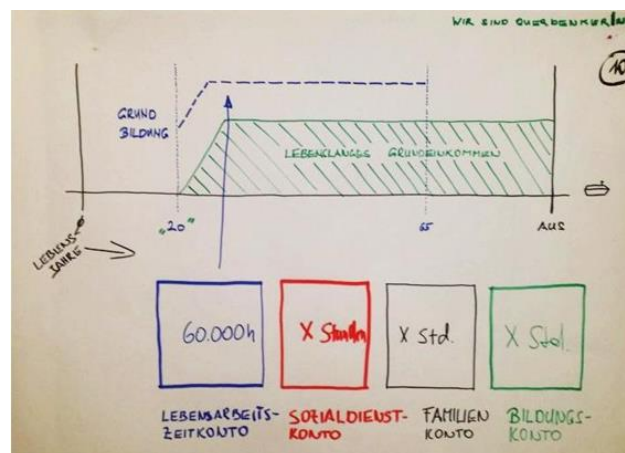 WIR SIND QUERDENKER/IN
10
GRUND
BILDUNG
LEBENSLANGES GRUNDEINKOMMEN
"20"
65
AUS
LEBENS-
JAHRE
60.000h
X Stunden
X Std.
X Std.
LEBENSARBEITS-
ZEITKONTO
SOZIALDIENST-
KONTO
FAMILIEN
KONTO
BILDUNGS-
KONTO